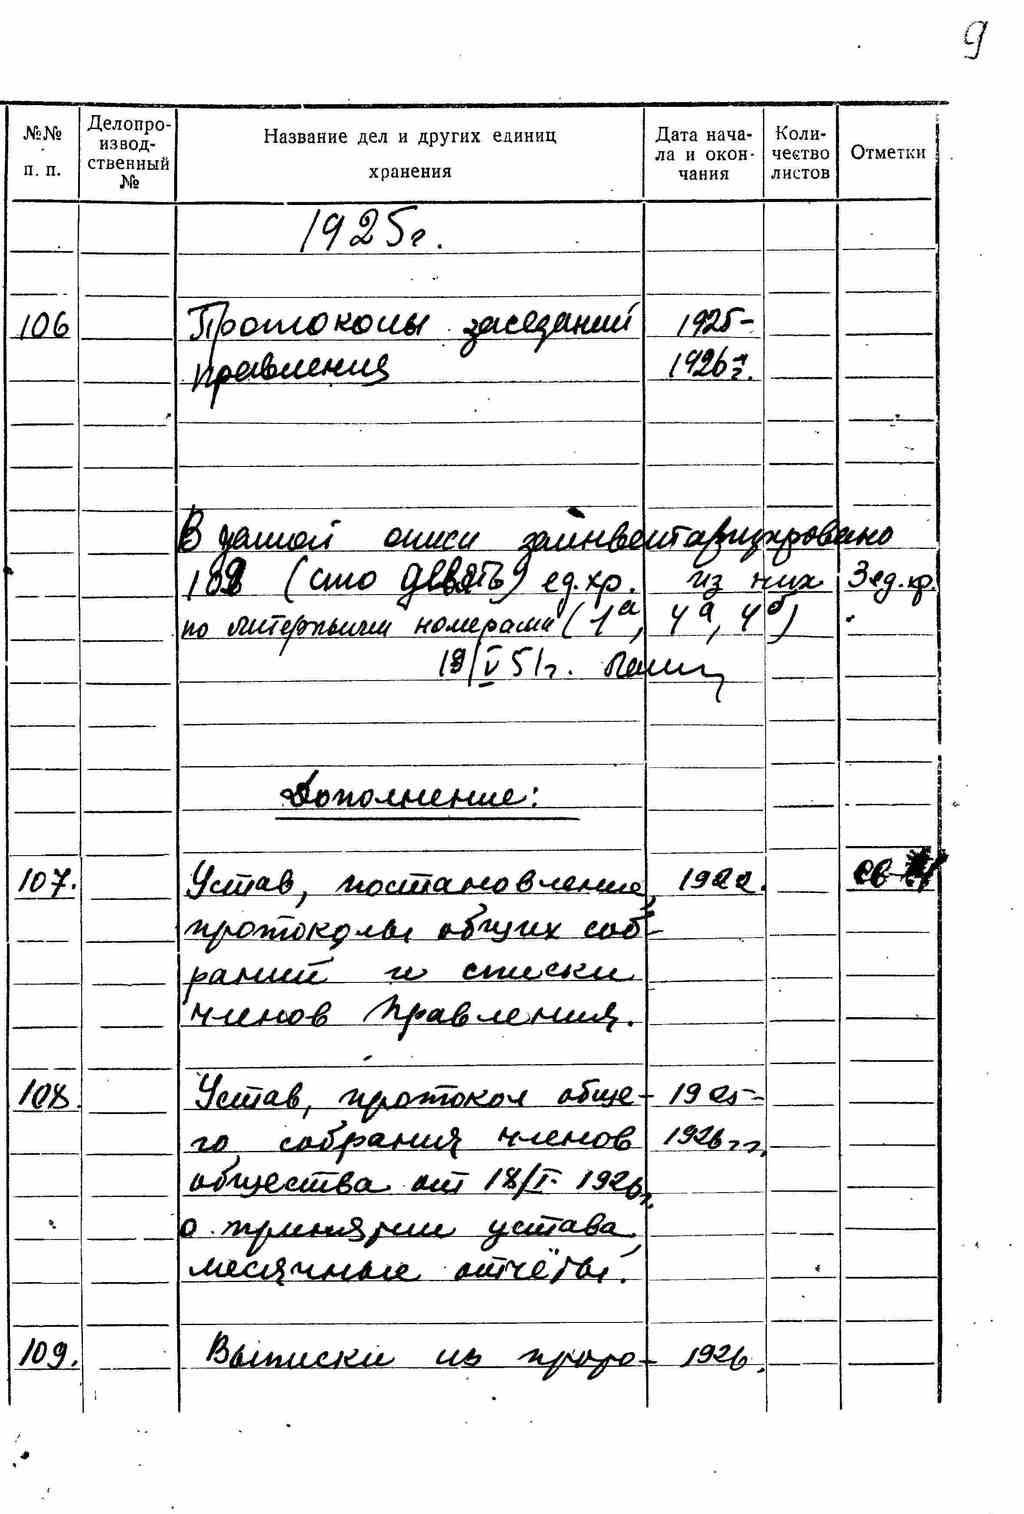 9
№№ п. п. Делопро-изводственный № Название дел и других единиц хранения Дата начала и окончания Количество листов Отметки
1925г.
106 Протоколы заседаний 1925-
правления 1926г.
В данной описи заинвентаризировано
109 (сто девять) ед.хр. из них 3 ед.хр.
по литерным номерами (1а, 4а, 4б)
19/V 51г.
Дополнение:
107. Устав, постановление, 1922. св
протоколы общих соб-
раний и списки
членов Правления.
108. Устав, протокол обще- 1925-
го собрания членов 1926гг.
общества от 18/I- 1926г.
о принятии устава,
месячные отчёты.
109. Выписки из прото- 1926.